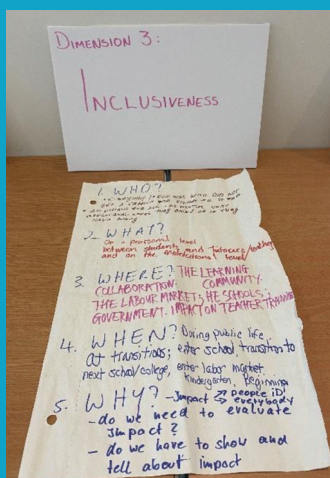 DIMENSION 3:
INCLUSIVENESS
1. WHO?
2. WHAT?
On a personal level
between students and tutors/teachers
and on the institutional level
3. WHERE? THE LEARNING
COLLABORATION. COMMUNITY.
THE LABOUR MARKET. THE SCHOOLS;
GOVERNMENT. IMPACT ON TEACHER TRAINING
4. WHEN? During public life
at transitions; enter school, transition to
next school/college, enter labor market
kindergarten, beginning
5. WHY? - Impact people ID
everybody
- do we need to evaluate
impact?
- do we have to show and
tell about impact